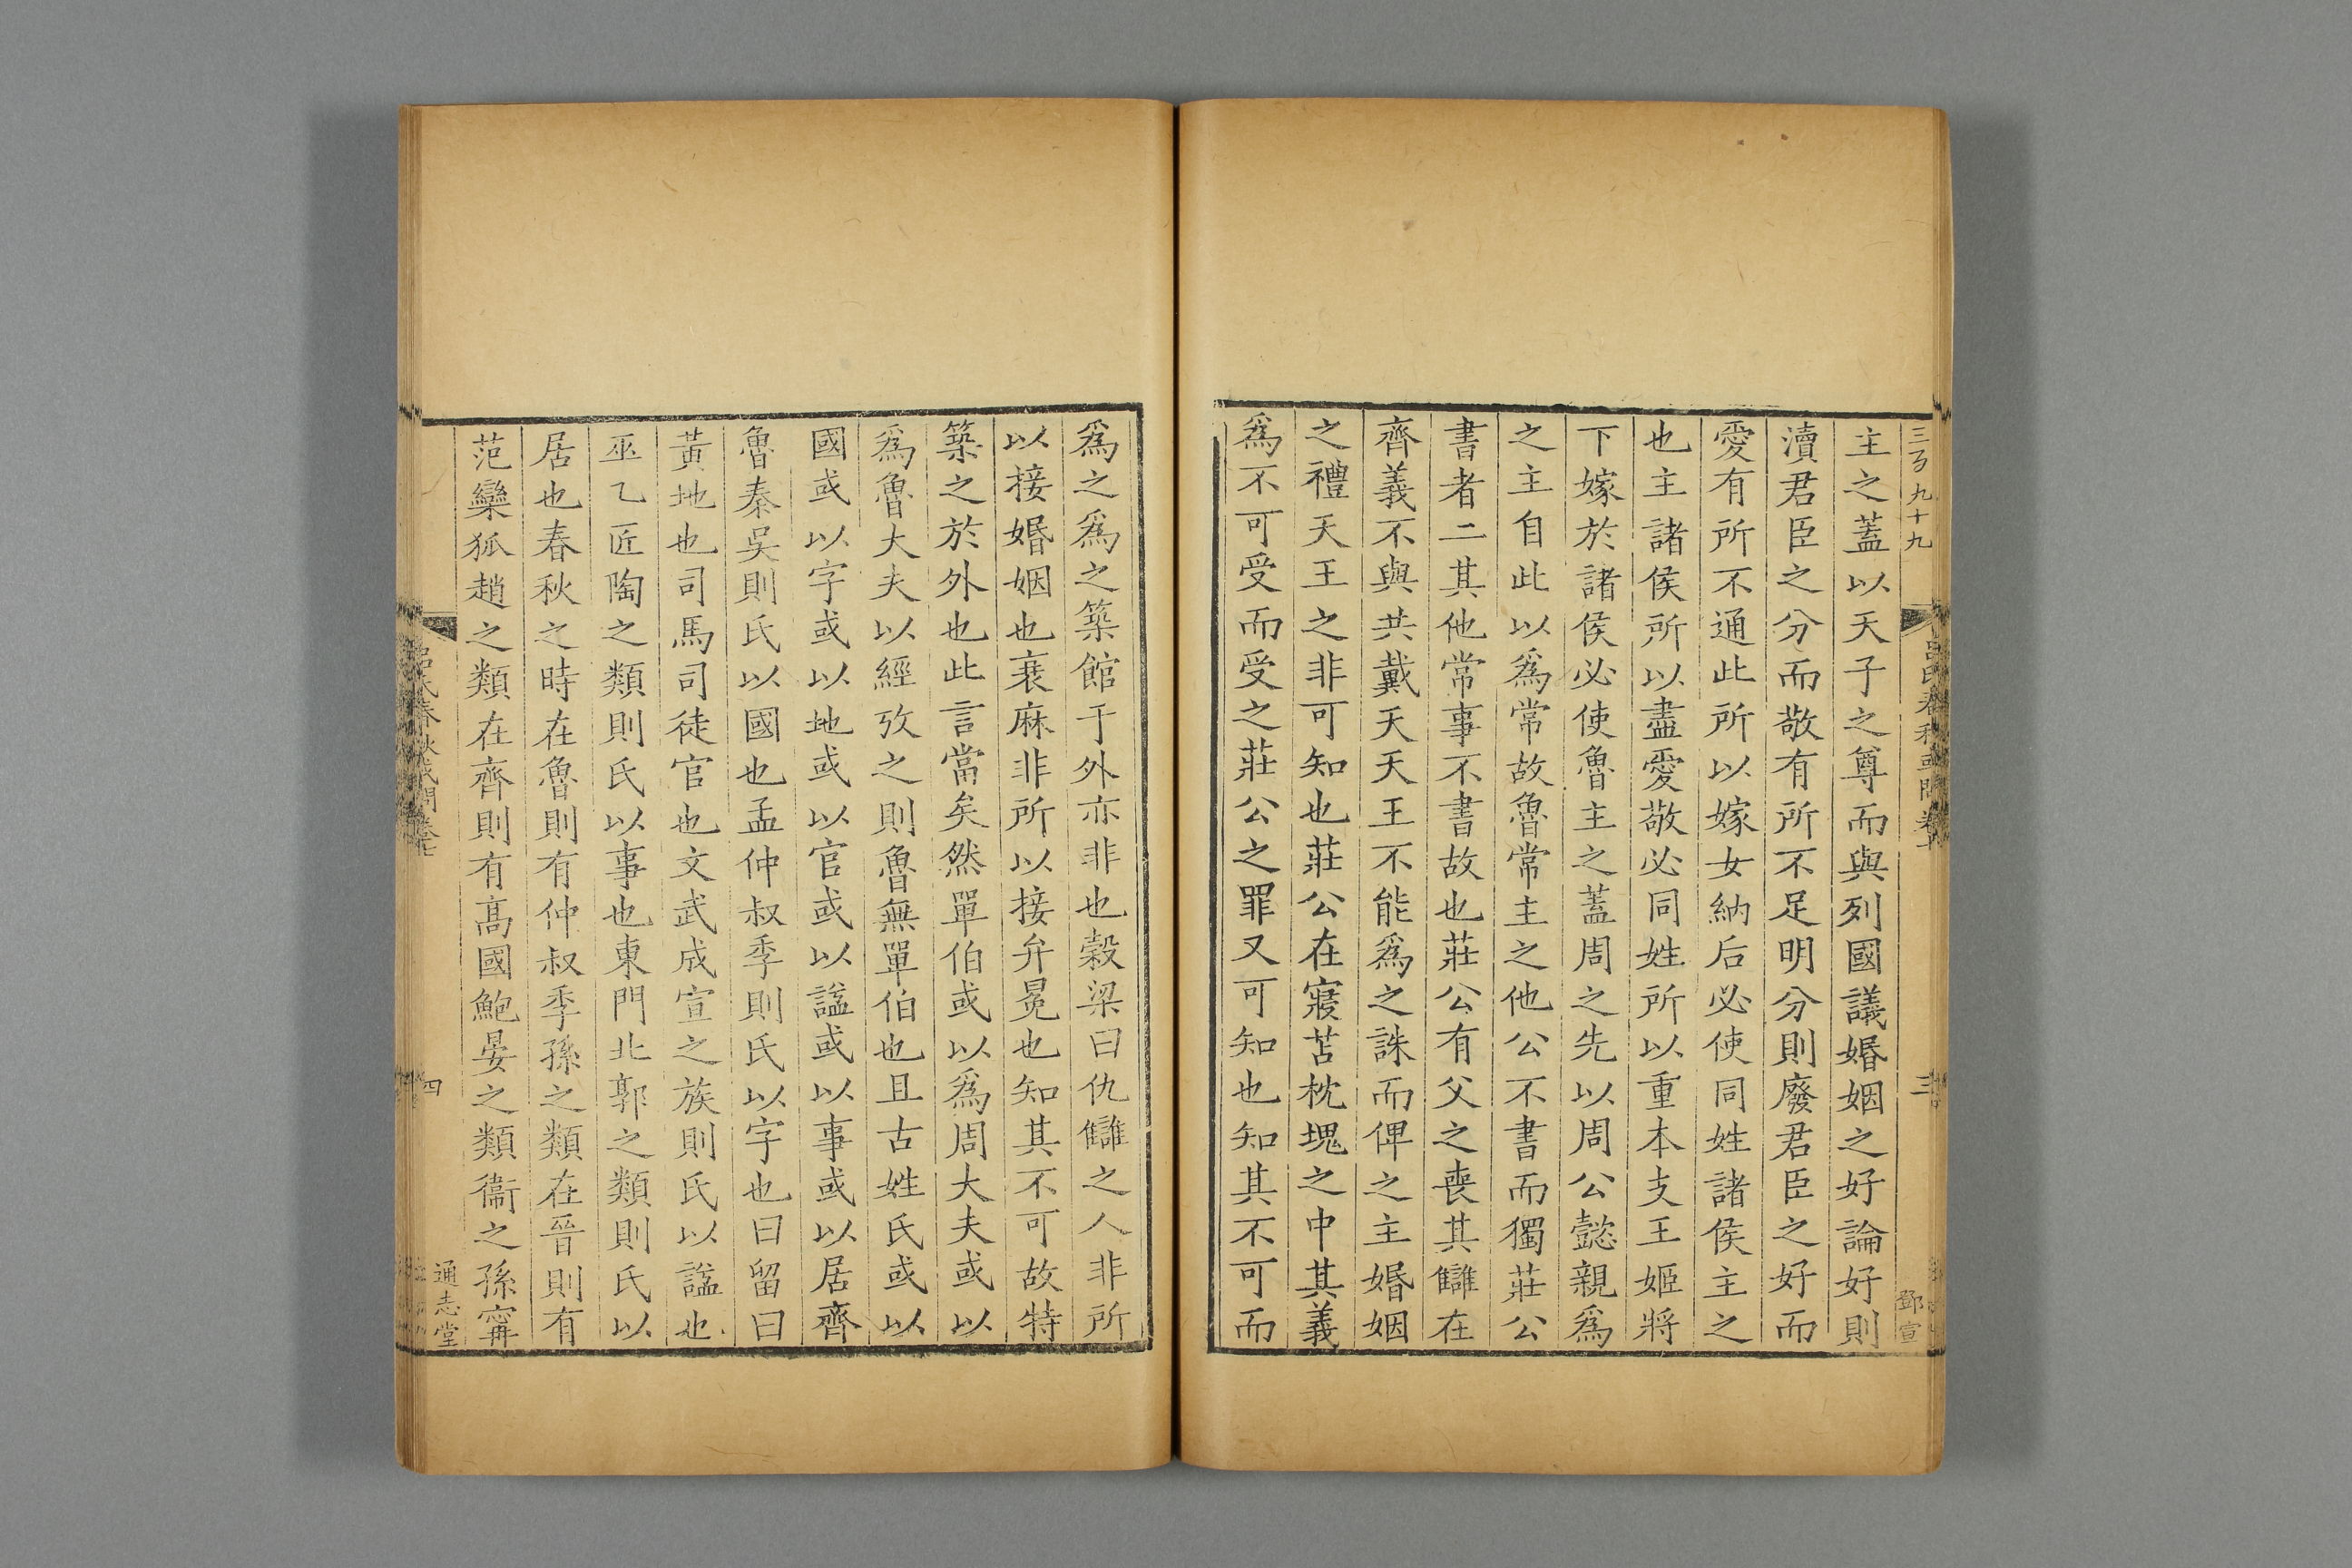 三百九十九
呂氏春秋或問卷
三
鄧宣
主之蓋以天子之尊而與列國議婚姻之好論好則
瀆君臣之分而敬有所不足明分則廢君臣之好而
愛有所不通此所以嫁女納后必使同姓諸侯主之
也主諸侯所以盡愛敬必同姓所以重本支王姬將
下嫁於諸侯必使魯主之蓋周之先以周公懿親為
之主自此以為常故魯常主之他公不書而獨莊公
書者二其他常事不書故也莊公有父之喪其讎在
齊義不與共戴天天王不能為之誅而俾之主婚姻
之禮天王之非可知也莊公在寢苫枕塊之中其義
為不可受而受之莊公之罪又可知也知其不可而
為之為之築館于外亦非也榖梁曰仇讎之人非所
以接婚姻也衰麻非所以接弁冕也知其不可故特
築之於外也此言當矣然單伯或以為周大夫或以
為魯大夫以經攷之則魯無單伯也且古姓氏或以
國或以字或以地或以官或以謚或以事或以居齊
魯秦吳則氏以國也孟仲叔季則氏以字也曰留曰
黃地也司馬司徒官也文武成宣之族則氏以謚也
巫乙匠陶之類則氏以事也東門北郭之類則氏以
居也春秋之時在魯則有仲叔季孫之類在晉則有
范欒狐趙之類在齊則有高國鮑晏之類衞之孫甯
呂氏春秋或問卷七
四
通志堂